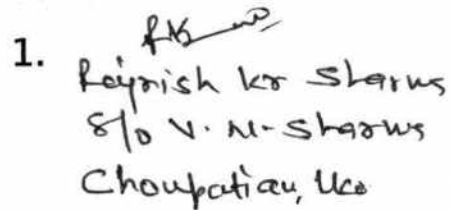 1.
Rajnish kr Sharma
S/o V. N. Sharma
Choupatian, Lko